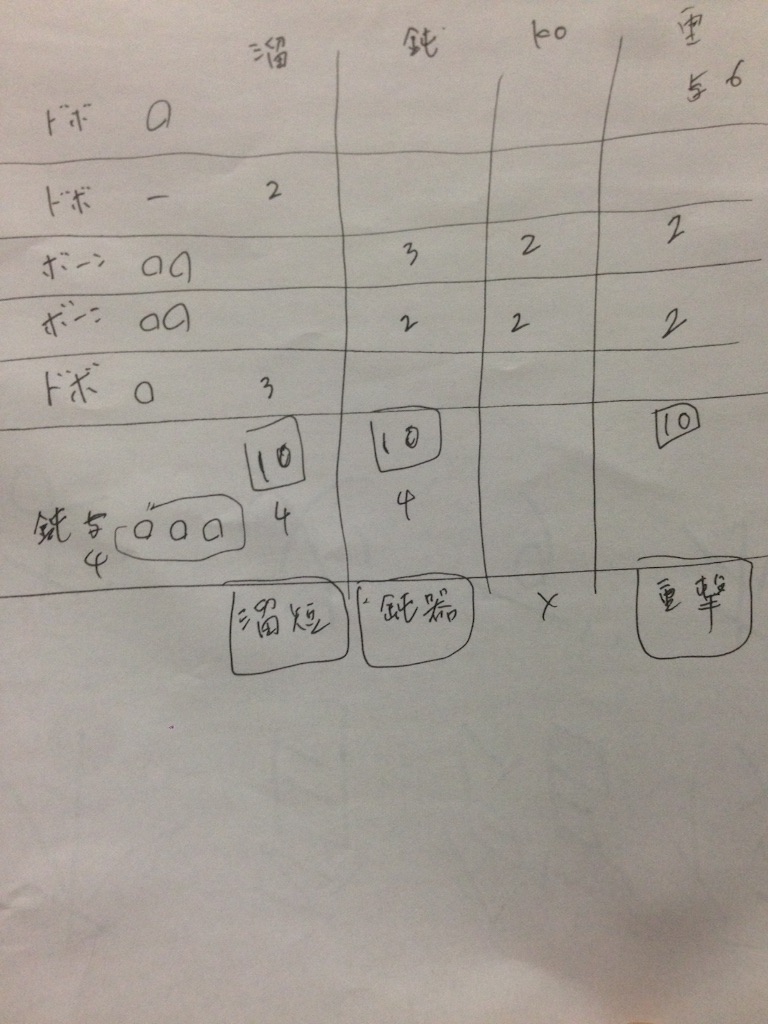 溜 鈍 KO 重
ドボ 〇 5 6
ドボ ー 2
ボーン 〇〇 3 2 2
ボーン 〇〇 2 2 2
ドボ 〇 3
10 10 10
鈍 5 〇〇〇 4 4
4
溜短 鈍器 × 重撃